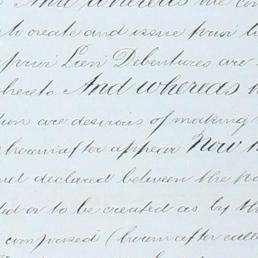 And whereas the con
to create and issue prior li
prior Lien Debentures are
hereto And whereas t
tion are desirous of making
hereinafter appear Now t
and declared between the pa
ted or to be created as by th
composed (hereinafter calle